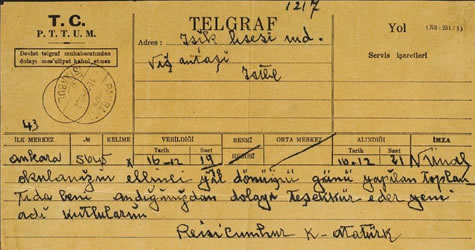 1217
T. C.
P. T. T. U. M.
Devlet telgraf muhaberatından
dolayı mes'uliyet kabul etmez
TELGRAF
Adres : Işık lisesi md.
Nişantaşı
Yol (No: 261/1)
Servis işaretleri
İSTANBUL
43
İLK MERKEZ № KELİME VERİLDİĞİ RESMÎ ORTA MERKEZ ALINDIĞI İMZA
Tarih Saat HUSUSİ Tarih Saat
ankara x 16-12 19 16-12 21
okulanığın ellinci yıl dönüğü günü yapılan toplan
tıda beni andığınızdan dolayı teşekkür eder yeni
adı kutlularım
Reisicumhur K. Atatürk